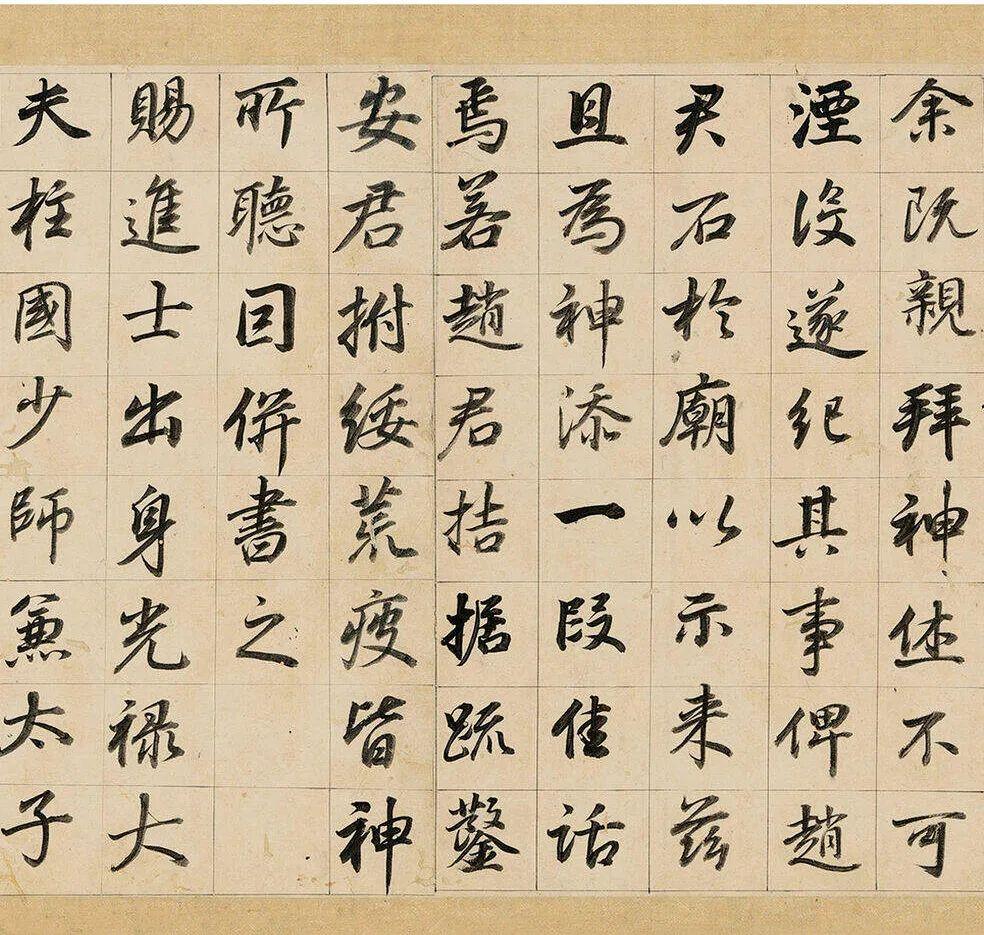 余既親拜神休不可
湮没遂紀其事俾趙
君石於廟以示来兹
且為神添一段佳話
焉若趙君拮据疏鑿
安君拊綏荒疲皆神
所聽囙併書之
賜進士出身光禄大
夫柱國少師兼太子